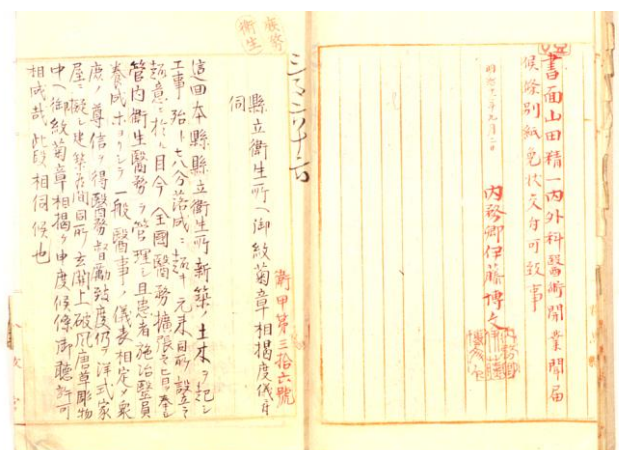 書面山田精一内外科醫術開業聞届
候條別紙免状交付可致事
明治十一年九月二日
内務卿伊藤博文
衛甲第三拾六號
縣立衞生所ヘ御紋菊章相掲度儀ニ付
伺
這回本縣縣立衞生所新築ノ土木ヲ起シ
工事殆ト七八分落成ニ趣キ元来目所設立ノ
趣意ニ於ル目今全國醫務擴張之旨ヲ奉シ
管内衞生醫務ヲ管理シ且患者施治醫員
養成ホヨリシテ一般醫事ノ儀表相定メ衆
庶ノ尊信ヲ得醫務督勵致度仍テ洋式家
屋ニ擬シ建築玄関上破風唐草彫物
中ヘ御紋菊章相掲ケ申度候條御聴許可
相成哉此段相伺候也
庶務
衛生